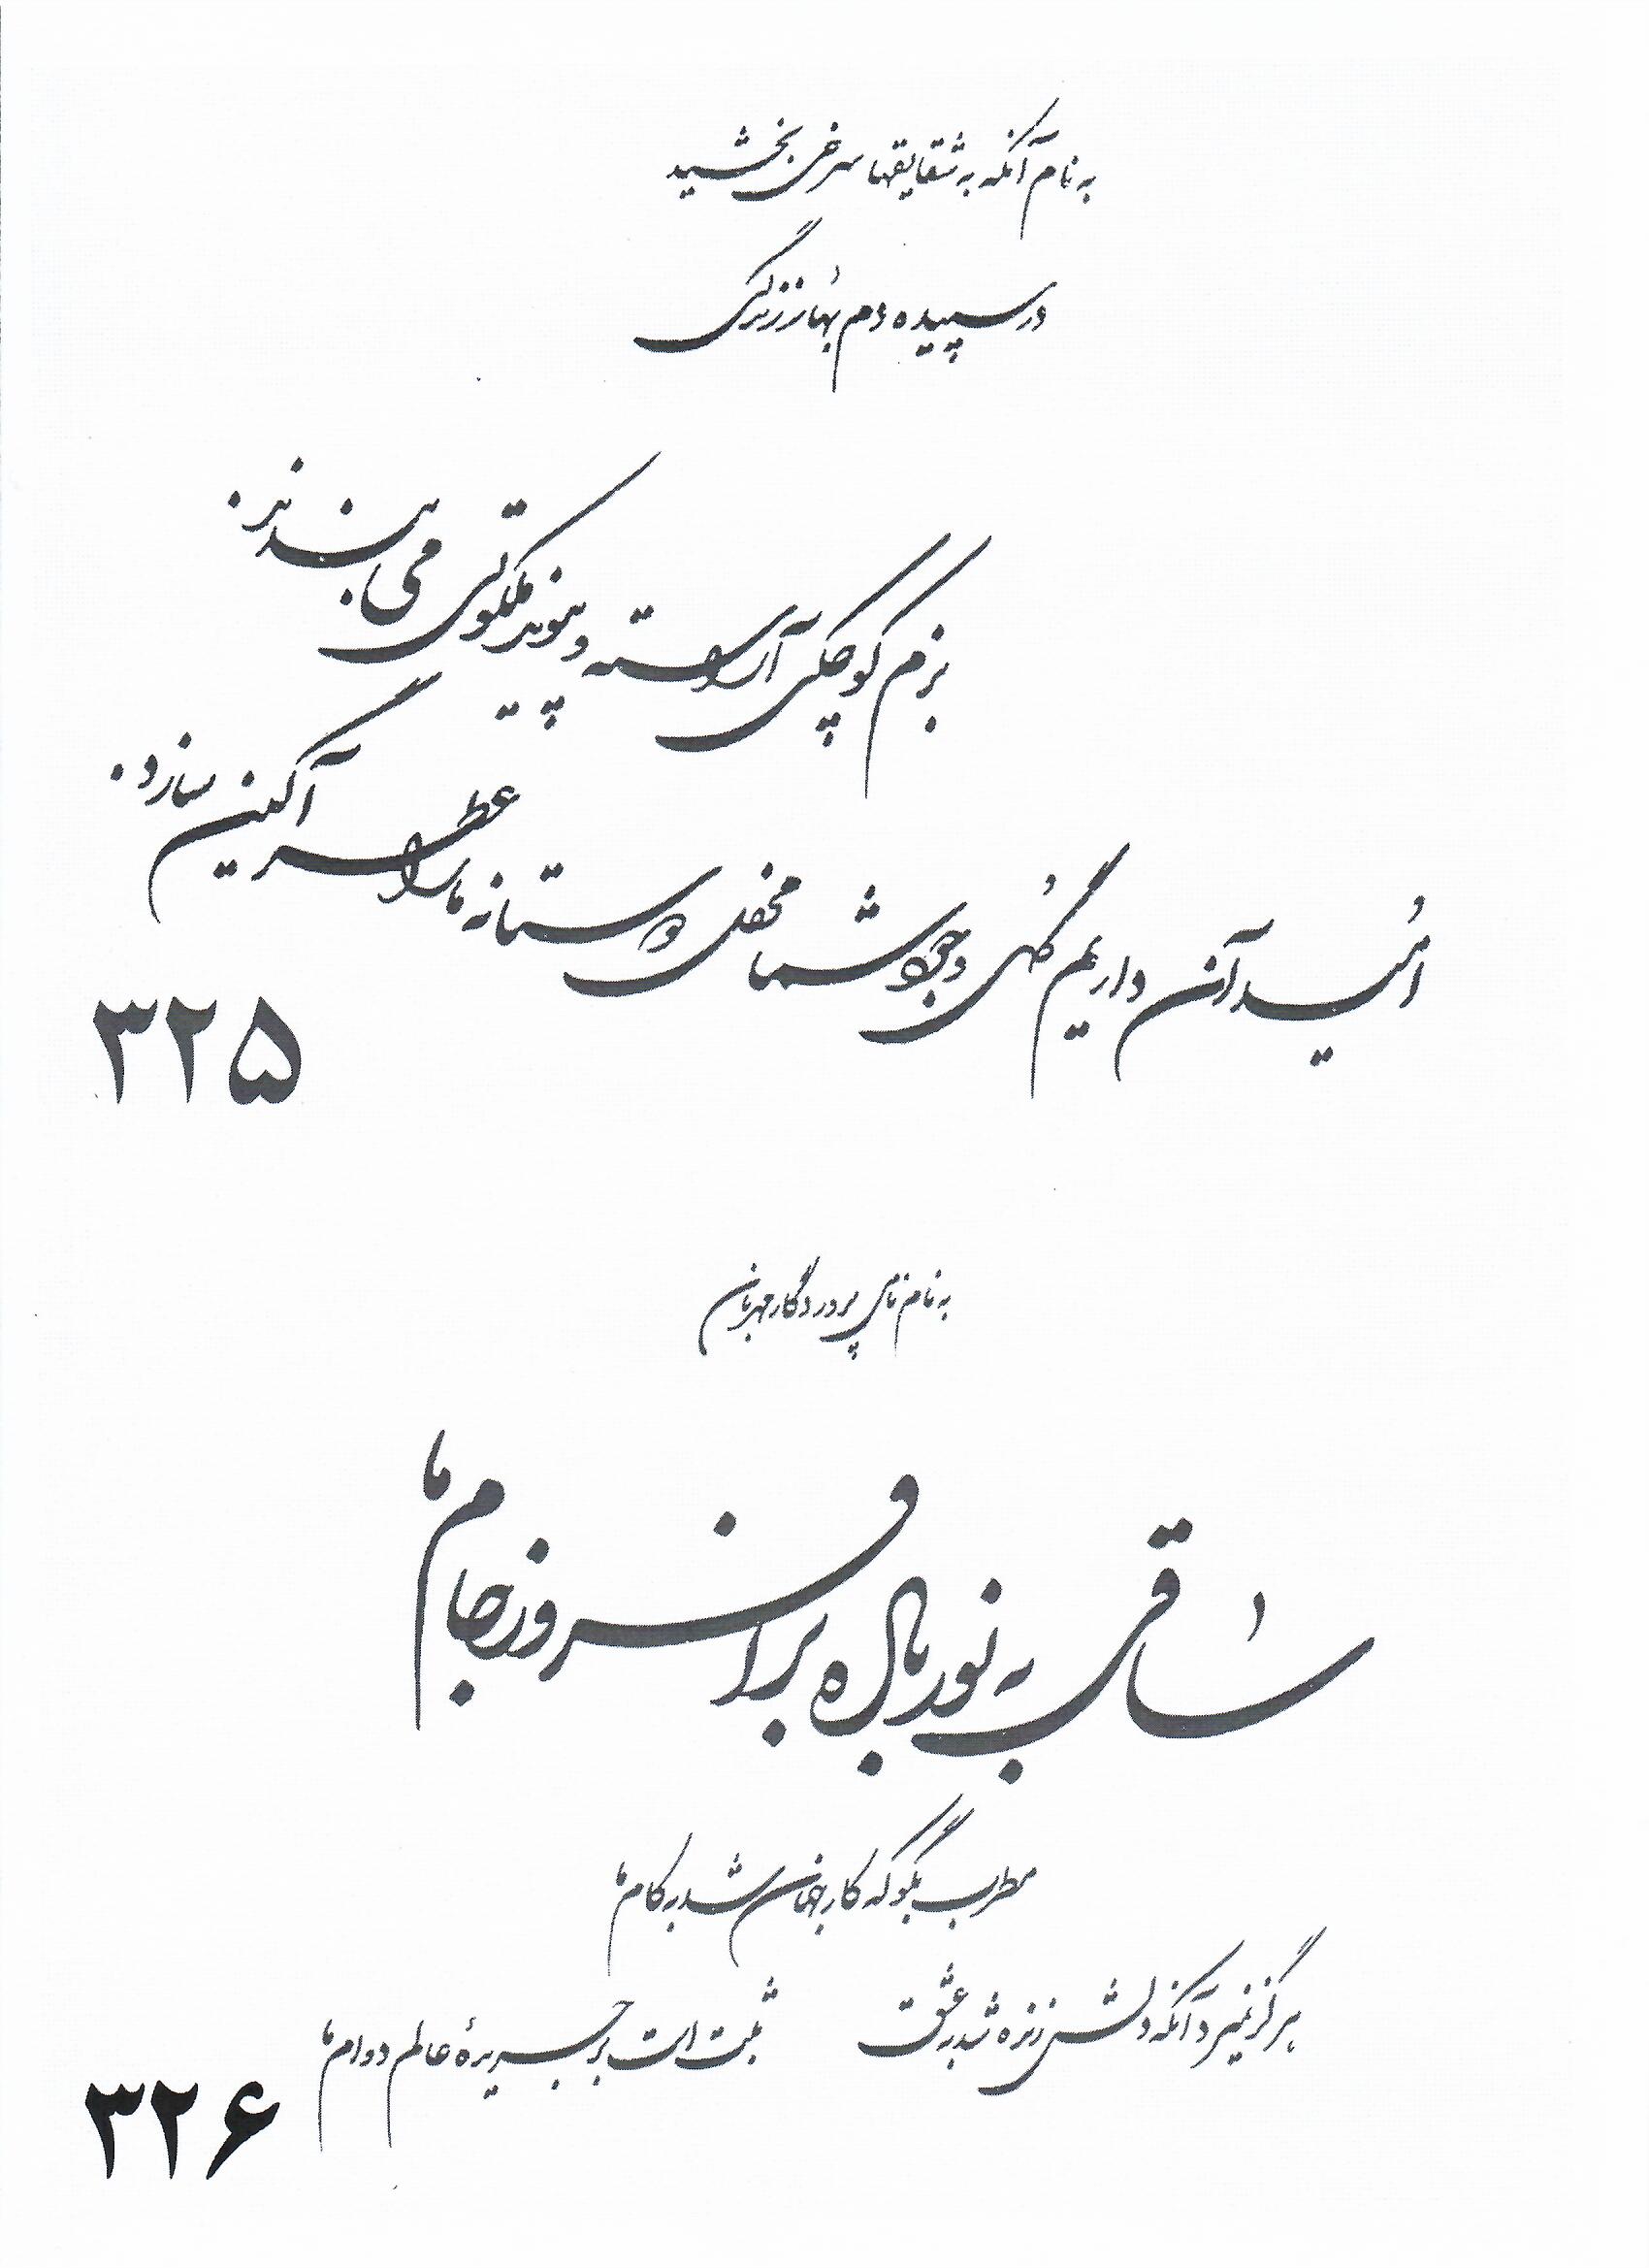 به نام آنکه به شقایقها سرخی بخشید
در سپیده دم بهار زندگی
بزم کوچکی آراسته و پیوند ملکوتی می بندند.
امید آن داریم گُلهی وجود شما محفل دوستانه ما را عطر آگین سازد.
۳۲۵
به نام نامی پروردگار مهربان
ساقی به نور باده برافروز جام ما
مطرب بگو که کار جهان شد به کام ما
هرگز نمیرد آنکه دلش زنده شد به عشق ثبت است بر جریدهٔ عالم دوام ما
۳۲۶